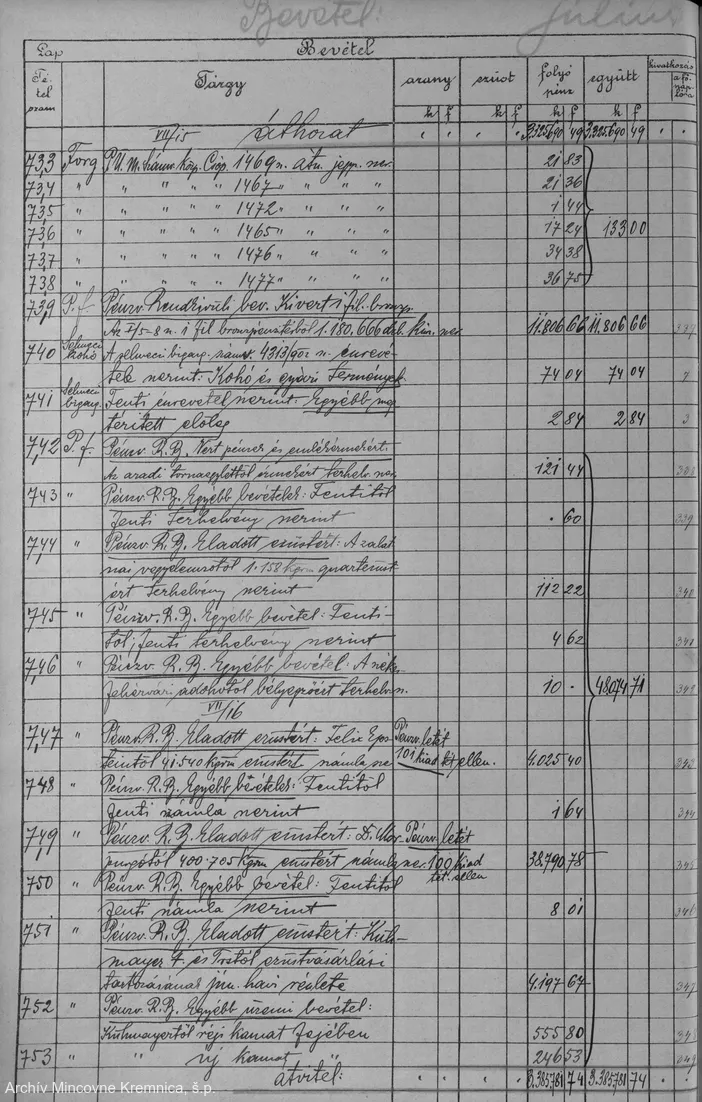 Bevétel: Július
Lap Bevétel
Tétel szám Tárgy arany ezüst folyó pénz együtt hivatkozás a főnaplóra
k f k f k f k f
VII/15 áthozat " " " " 3.325690 49 3.325690 49 " "
733 Forg P.Ü.M. Számv. közp. Csop. 1469 n. átu. jegyz. sz. 21 83
734 " " " " " 1467 " " " " 21 36
735 " " " " " 1472 " " " " 1 44
736 " " " " " 1465 " " " " 17 24 133 00
737 " " " " " 1476 " " " " 34 38
738 " " " " " 1477 " " " " 36 75
739 P. f. Pénzv. Rendkivüli bev. Kivert 1 fil. bronzp.
Az 1 fil bronzpénzekből 1.180,666 db. kim. sz. 11.806 66 11.806 66 339
740 Selmeci kohó A selmeci bigazg. számv. 4313/901 n. énrevé-
tele szerint: Kohó és gyári termények 74 04 74 04 7
741 Selmeci bigazg. Fenti énrevétel szerint: Egyébb meg
térített előleg 2 84 2 84 3
742 P. f. Pénzv. R. B. Vert pénzek és emlékérmekért.
Az aradi tornaegylettől érmekért terhelv. sz. 121 44
743 " Pénzv. R. B. Egyébb bevételek: Fentitől
fenti terhelvény szerint . 60 339
744 " Pénzv. R. B. Eladott ezüstért: A zalat
nai vegyelemzőtől 1.158 kgrm quartezüst
ért terhelvény szerint 112 22 340
745 " Pénzv. R. B. Egyébb bevétel: Fenti-
től, fenti terhelvény szerint 4 62 341
746 " Pénzv. R. B. Egyébb bevétel: A szék.
fehérvári adóhivtól bélyegzőért terhelv. n. 10 . 48074 71
VII/16
747 " Pénzv. R. B. Eladott ezüstért: Felix Eps- Pénzv. letét
teintól 41.540 kgrm ezüstért számla sz 101 kiad tét ellen. 4.025 40 343
748 " Pénzv. R. B. Egyébb bevételek: Fentitől
fenti számla szerint 1 64 344
749 " Pénzv. R. B. Eladott ezüstért: D. Mor- Pénzv. letét
purgótól 400.705 kgrm ezüstért számla sz. 100 kiad tét. ellen 38.790 78 345
750 " Pénzv. R. B. Egyébb bevétel: Fentitől
fenti számla szerint. 8 01 346
751 " Pénzv. R. B. Eladott ezüstért: Kuh-
mayer F. és Trstól ezüstvásárlási
tartozásának jún. havi részlete 4.197 67 347
752 " Pénzv. R. B. Egyébb üzemi bevétel:
Kuhmayertől régi kamat fejében 555 80 348
753 " " új kamat " 246 53 349
átvitel: " " " " 3.385781 74 3.385781 74 . .
Archív Mincovne Kremnica, š.p.